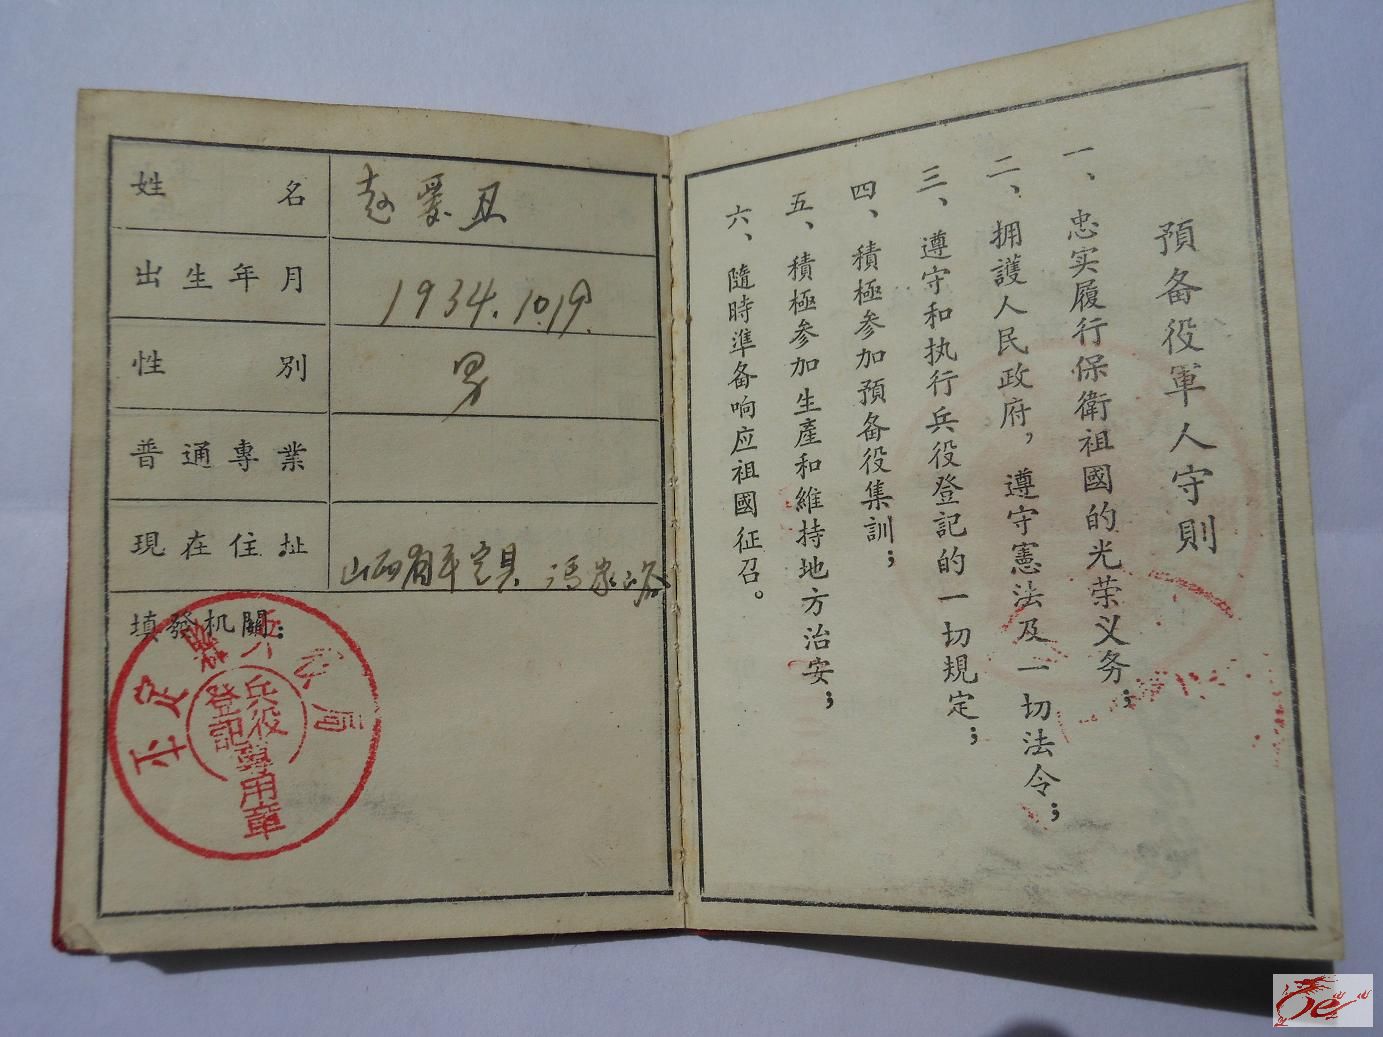 姓名 赵爱丑
出生年月 1934.10.19.
性別 男
普通專業
現在住址 山西省平定县 冯家峪
填發机關：
平定縣兵役局
兵役登記專用章
預备役軍人守則
一、忠实履行保衛祖國的光荣义务；
二、拥護人民政府，遵守憲法及一切法令；
三、遵守和执行兵役登記的一切規定；
四、積極参加預备役集訓；
五、積極参加生產和維持地方治安；
六、隨時準备响应祖國征召。